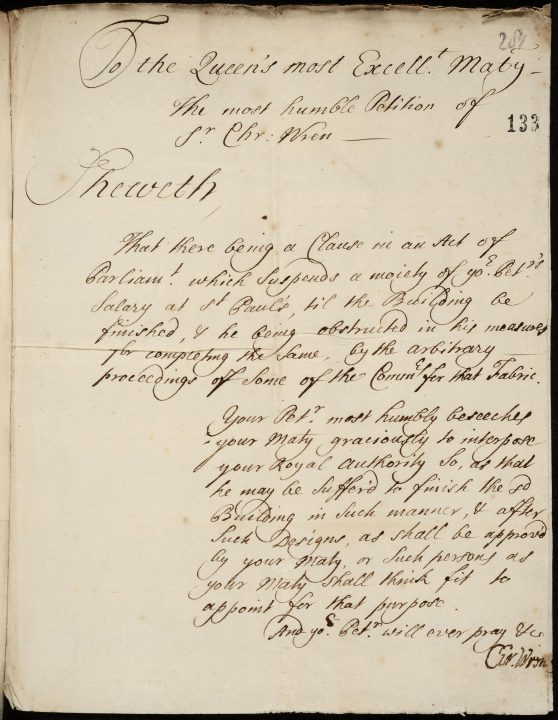 281
To the Queen's most Excell.t Maty
The most humble Petition of
Sr. Chr: Wren
133
Sheweth
That there being a Clause in an Act of
Parliamt. which suspends a moiety of yor. Petrs.
Salary at St Paul's, til the Building be
finished, & he being obstructed in his measures
for completing the same, by the arbitrary
proceedings of some of the Commrs for that Fabric.
Your Petr. most humbly beseeches
your Maty graciously to interpose
your Royal authority so, as that
he may be suffer'd to finish the sd
Building in such manner, & after
such Designs, as shall be approv'd
by your Maty, or such persons as
your Maty shall think fit to
appoint for that purpose.
And yor. Petr. will ever pray &c
Chr. Wren